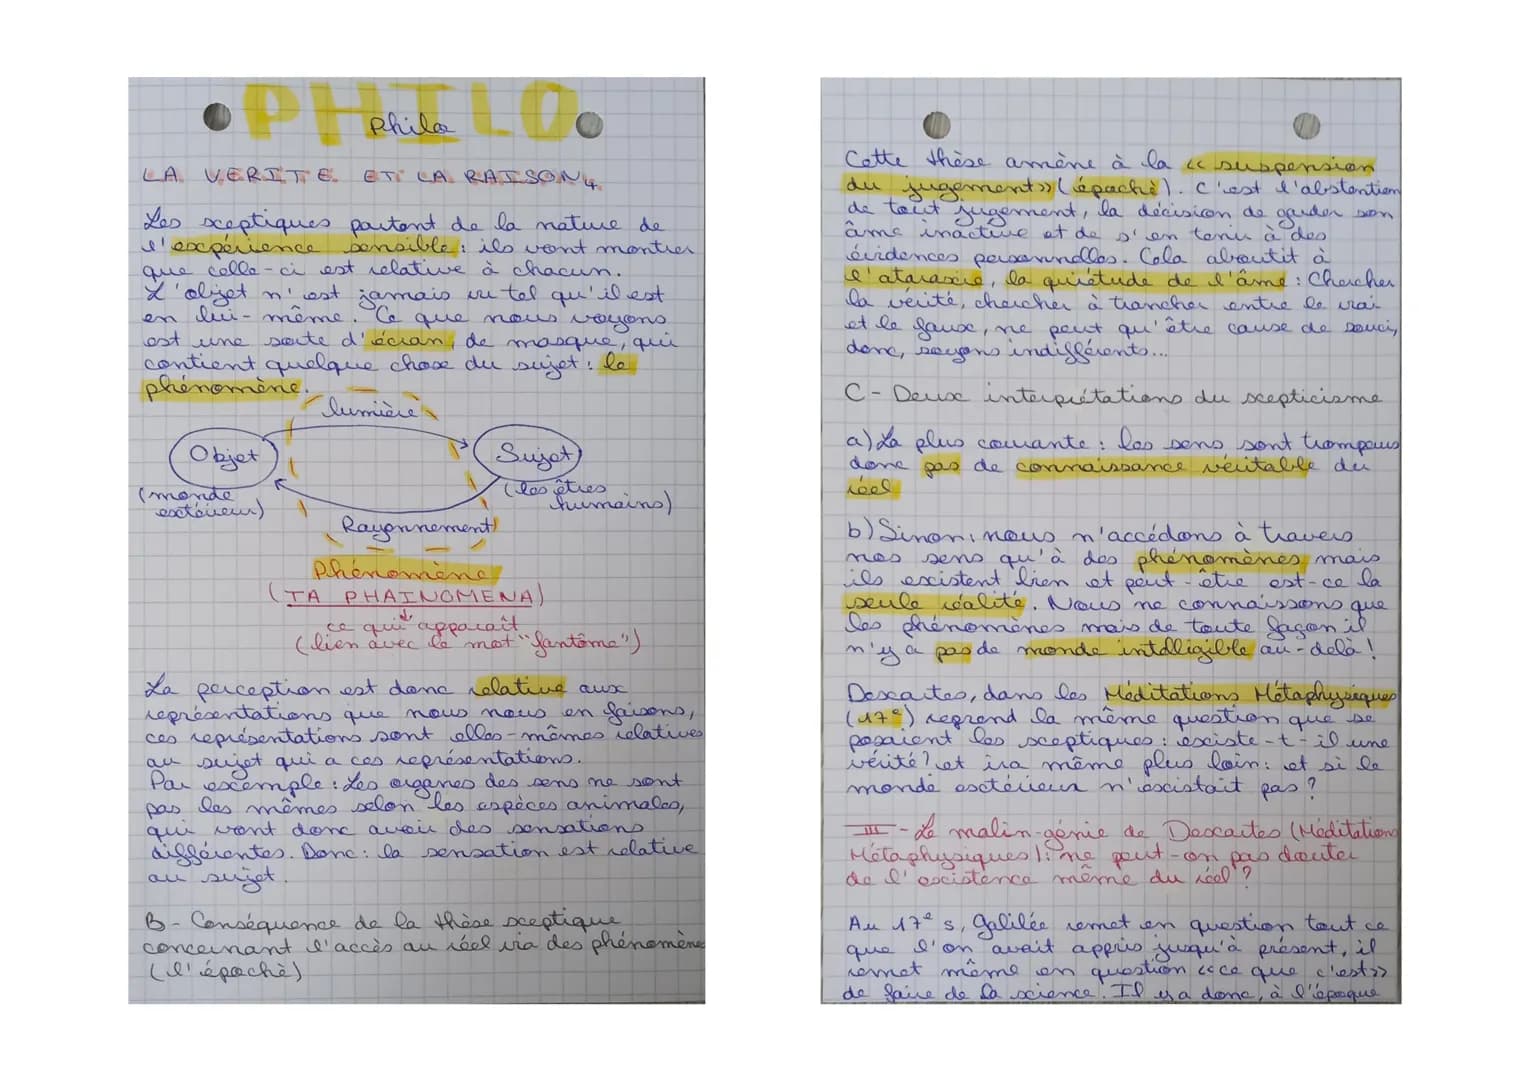 PHILO
Philo
LA VERITE ET LA RAISON 4.
Les sceptiques partent de la nature de
l'expérience sensible : ils vont montrer
que celle-ci est relative à chacun.
L'objet n'est jamais vu tel qu'il est
en lui-même. Ce que nous voyons
est une sorte d'écran, de masque, qui
contient quelque chose du sujet : le
phénomène.
lumière
Objet
Sujet
(monde
extérieur)
(les êtres
humains)
Rayonnement
Phénomène
(TA PHAINOMENA)
ce qui apparaît
(lien avec le mot "fantôme")
La perception est donc relative aux
représentations que nous nous en faisons,
ces représentations sont elles-mêmes relatives
au sujet qui a ces représentations.
Par exemple : Les organes des sens ne sont
pas les mêmes selon les espèces animales,
qui vont donc avoir des sensations
différentes. Donc : la sensation est relative
au sujet.
B - Conséquence de la thèse sceptique
concernant l'accès au réel via des phénomènes
(l'épochè)
Cette thèse amène à la « suspension
du jugement » (épochè). C'est l'abstention
de tout jugement, la décision de garder son
âme inactive et de s'en tenir à des
évidences personnelles. Cela aboutit à
l'ataraxie, la quiétude de l'âme : Chercher
la vérité, chercher à trancher entre le vrai
et le faux, ne peut qu'être cause de souci,
donc, soyons indifférents...
C - Deux interprétations du scepticisme
a) La plus courante : les sens sont trompeurs
donc pas de connaissance véritable du
réel
b) Sinon : nous n'accédons à travers
nos sens qu'à des phénomènes mais
ils existent bien et peut-être est-ce la
seule réalité. Nous ne connaissons que
les phénomènes mais de toute façon il
n'y a pas de monde intelligible au-delà !
Descartes, dans les Méditations Métaphysiques
(17e) reprend la même question que se
posaient les sceptiques : existe-t-il une
vérité ? et ira même plus loin : et si le
monde extérieur n'existait pas ?
III - Le malin-génie de Descartes (Méditations
Métaphysiques) : ne peut-on pas douter
de l'existence même du réel ?
Au 17e s, Galilée remet en question tout ce
que l'on avait appris jusqu'à présent, il
remet même en question « ce que c'est »
de faire de la science. Il y a donc, à l'époque